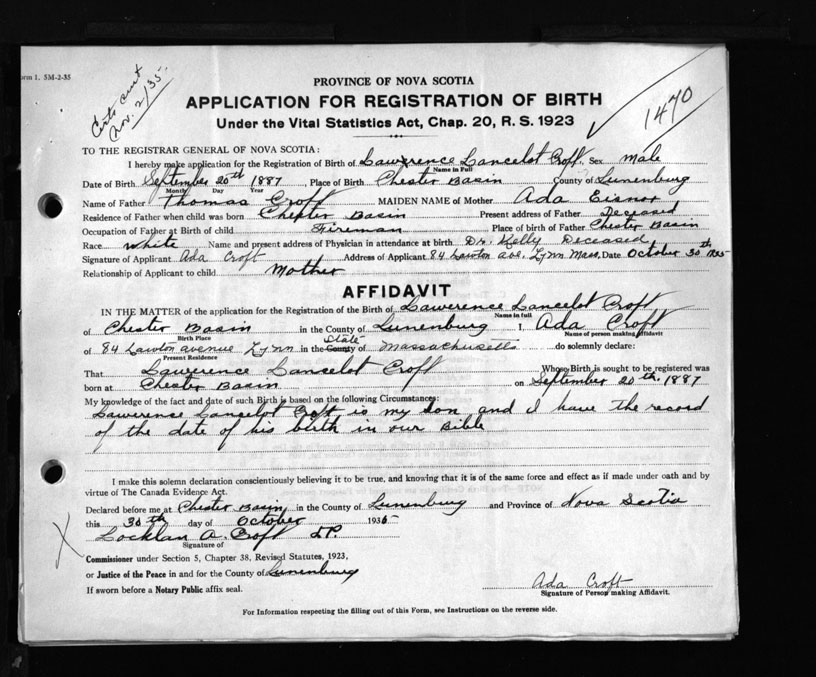 orm 1. 5M-2-35
Certs sent
Nov. 2/35
1470
PROVINCE OF NOVA SCOTIA
APPLICATION FOR REGISTRATION OF BIRTH
Under the Vital Statistics Act, Chap. 20, R. S. 1923
TO THE REGISTRAR GENERAL OF NOVA SCOTIA:
I hereby make application for the Registration of Birth of Lawerence Lancelot Croft, Sex Male
Name in Full
Date of Birth September 20th 1887, Place of Birth Chester Basin County of Lunenburg
Month Day Year
Name of Father Thomas Croft MAIDEN NAME of Mother Ada Eisnor
Residence of Father when child was born Chester Basin Present address of Father Deceased
Occupation of Father at Birth of child Fireman Place of birth of Father Chester Basin
Race White Name and present address of Physician in attendance at birth Dr. Kelly Deceased
Signature of Applicant Ada Croft Address of Applicant 84 Lawton ave. Lynn Mass. Date October 30th 1935
Relationship of Applicant to child Mother
AFFIDAVIT
IN THE MATTER of the application for the Registration of the Birth of Lawerence Lancelot Croft
Name in full
of Chester Basin in the County of Lunenburg I, Ada Croft
Birth Place Name of person making Affidavit
of 84 Lawton avenue Lynn in the County State of Massachusetts do solemnly declare:
Present Residence
That Lawerence Lancelot Croft Whose Birth is sought to be registered was
born at Chester Basin on September 20th. 1887
My knowledge of the fact and date of such Birth is based on the following Circumstances:
Lawerence Lancelot Croft is my son and I have the record
of the date of his birth in our Bible
I make this solemn declaration conscientiously believing it to be true, and knowing that it is of the same force and effect as if made under oath and by
virtue of The Canada Evidence Act.
Declared before me at Chester Basin in the County of Lunenburg and Province of Nova Scotia
this 30th day of October 1935
Locklan A. Croft J.P.
Signature of
Commissioner under Section 5, Chapter 38, Revised Statutes, 1923,
or Justice of the Peace in and for the County of Lunenburg
If sworn before a Notary Public affix seal.
Ada Croft
Signature of Person making Affidavit.
For Information respecting the filling out of this Form, see Instructions on the reverse side.